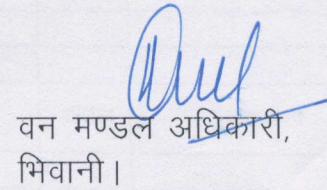 वन मण्डल अधिकारी,
भिवानी।